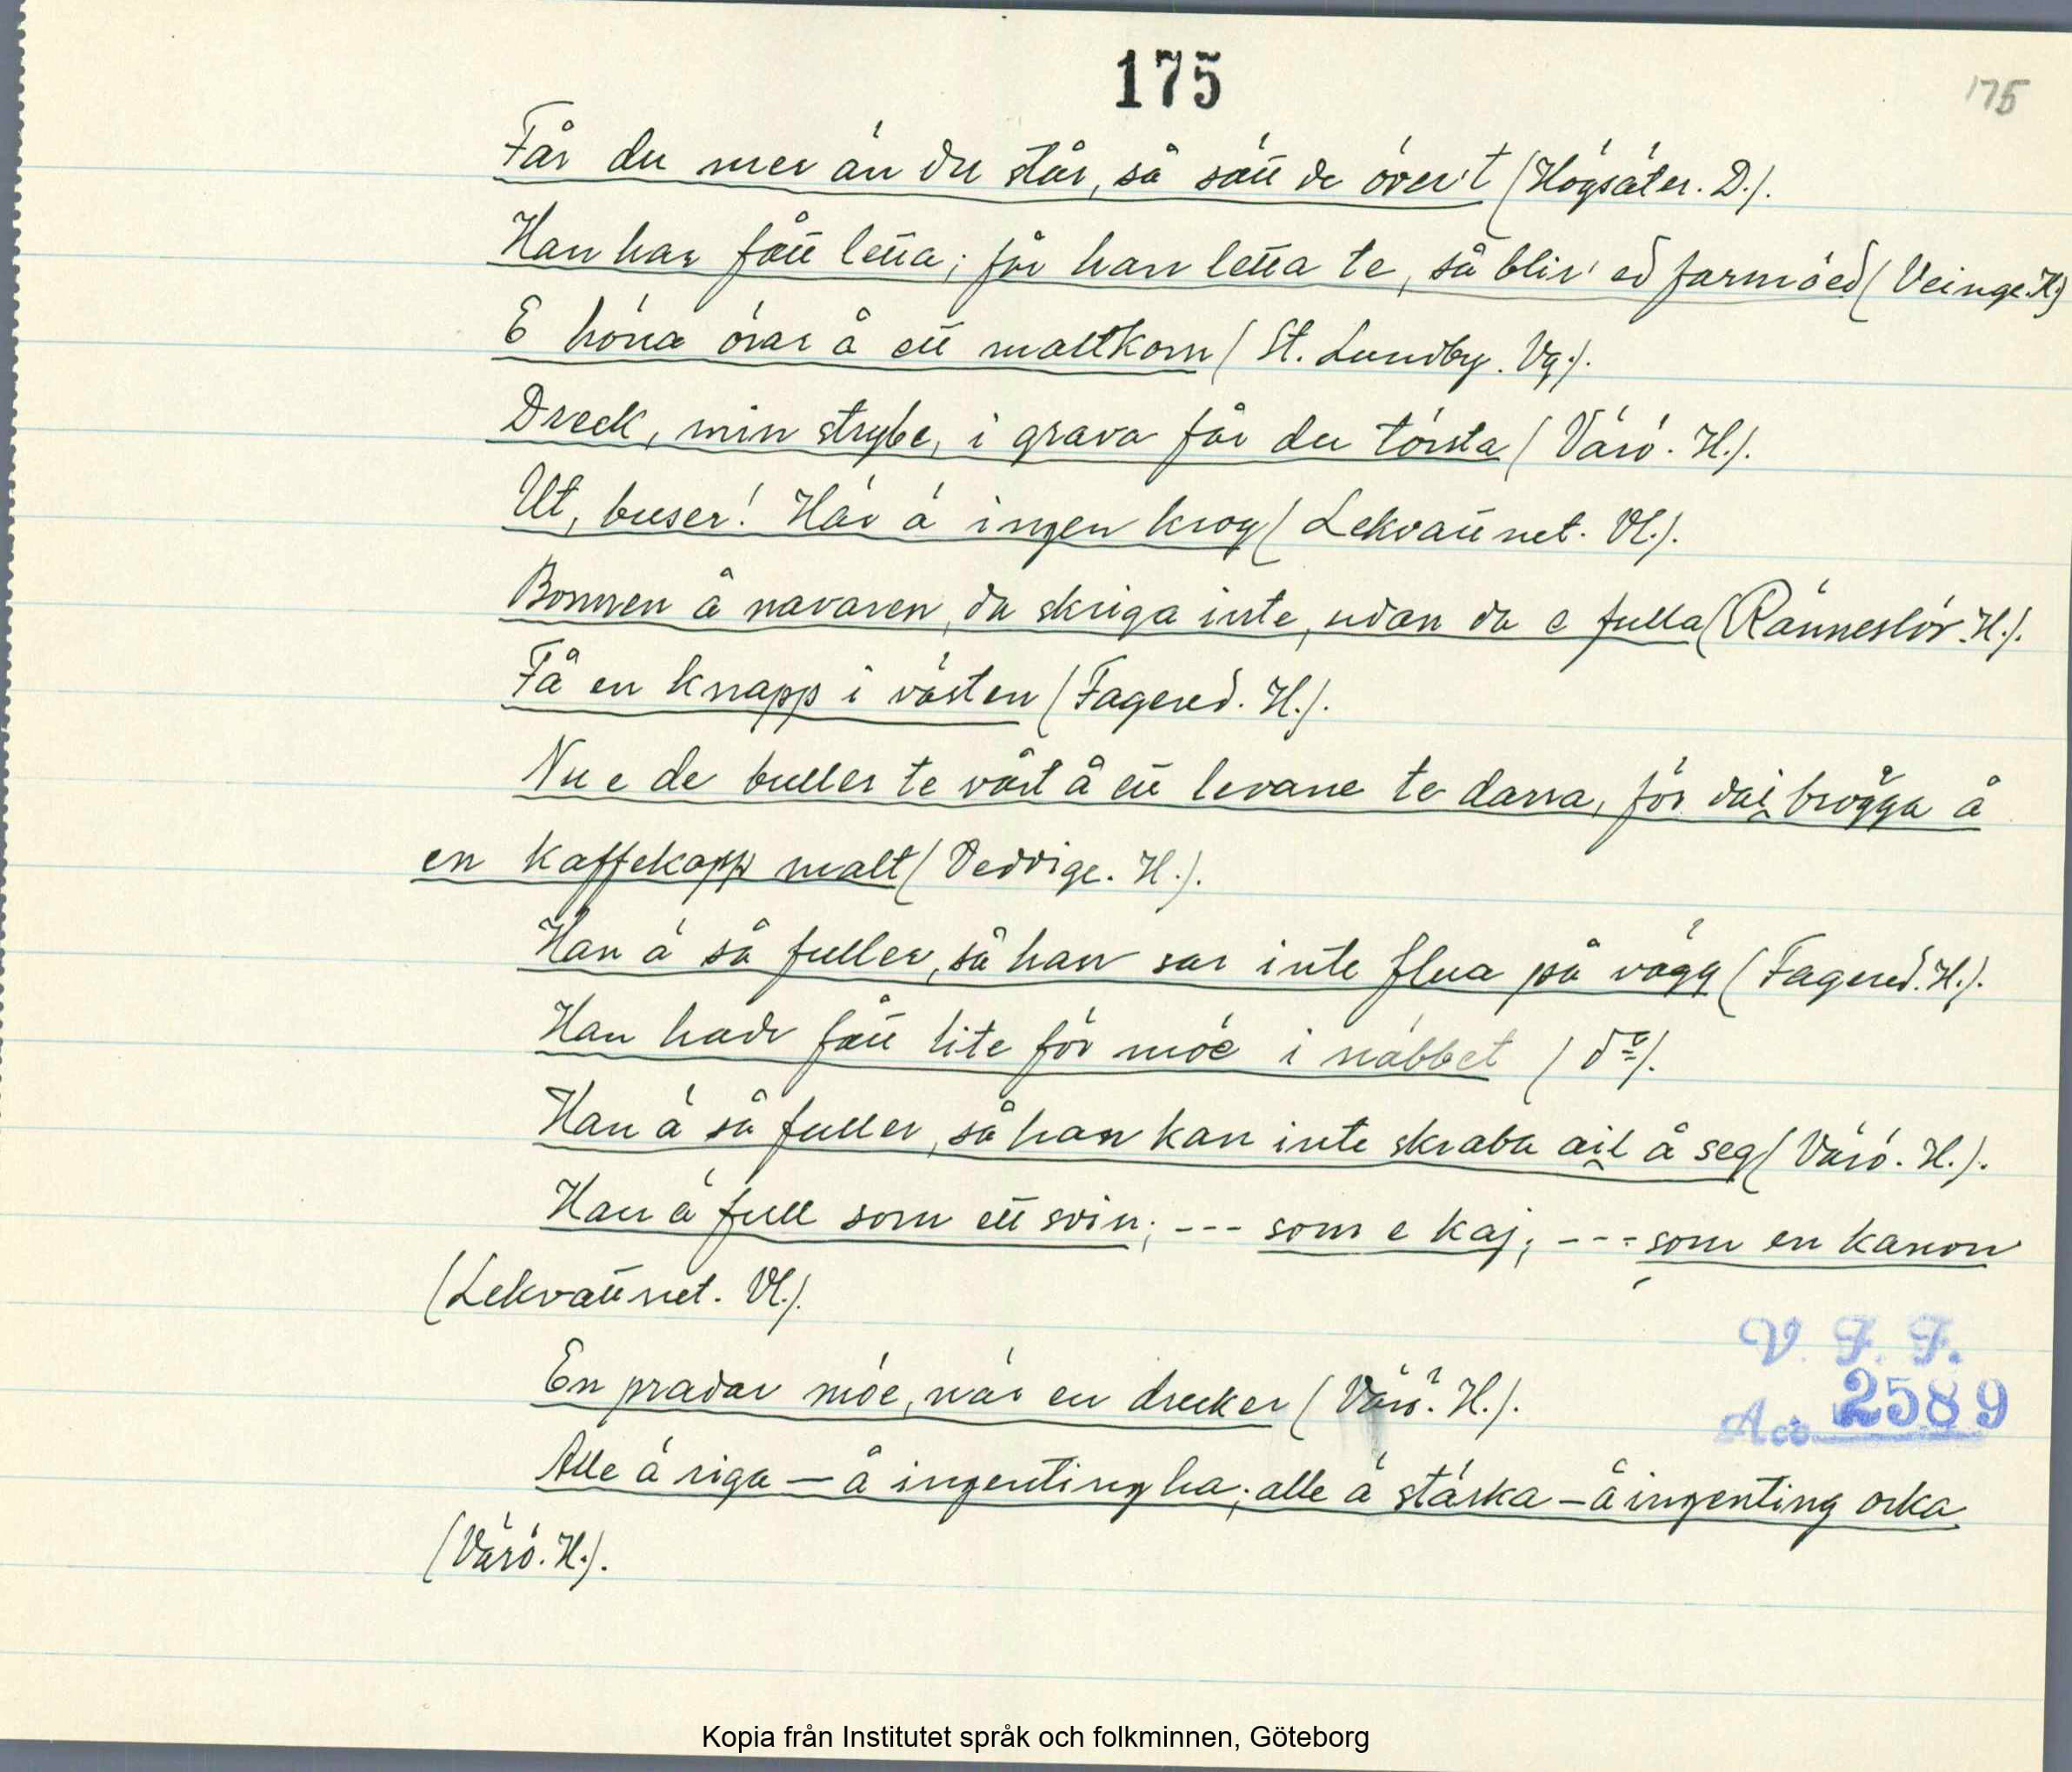 175
175
Får du mer än du står, så sätt de över't (Högsäter. D.).
Han har fått letta; får han letta te, så blir' ed farmöed (Veinge. H.)
E höna övar å ett maltkorn (St. Lundby. Vg.).
Dreck, min strybe, i grava får du törsta (Värö. H.).
Ut, buser! Här ä ingen krog (Lekvattnet. Vl.).
Bonnen å navaren, da skriga inte, udan da e fulla (Ränneslöv. H.).
Få en knapp i västen (Fagered. H.).
Nu e de buller teväst å ett levane te darra, för dai brögga å
en kaffekopp malt (Veddige. H.).
Han ä så fuller, så han sar inte flua på vägg (Fagered. H.).
Han hade fått lite för möe i näbbet (do).
Han ä så fuller, så han kan inte skraba ail å seg (Värö. H.).
Han ä full som ett svin; --- som e kaj; --- som en kanon
(Lekvattnet. Vl.).
En pradar möe, när en drecker (Värö. H.).
V. F. F.
Acc. 2589
Alle ä riga — å ingenting ha; alle ä stärka — å ingenting orka
(Värö. H.).
Kopia från Institutet språk och folkminnen, Göteborg